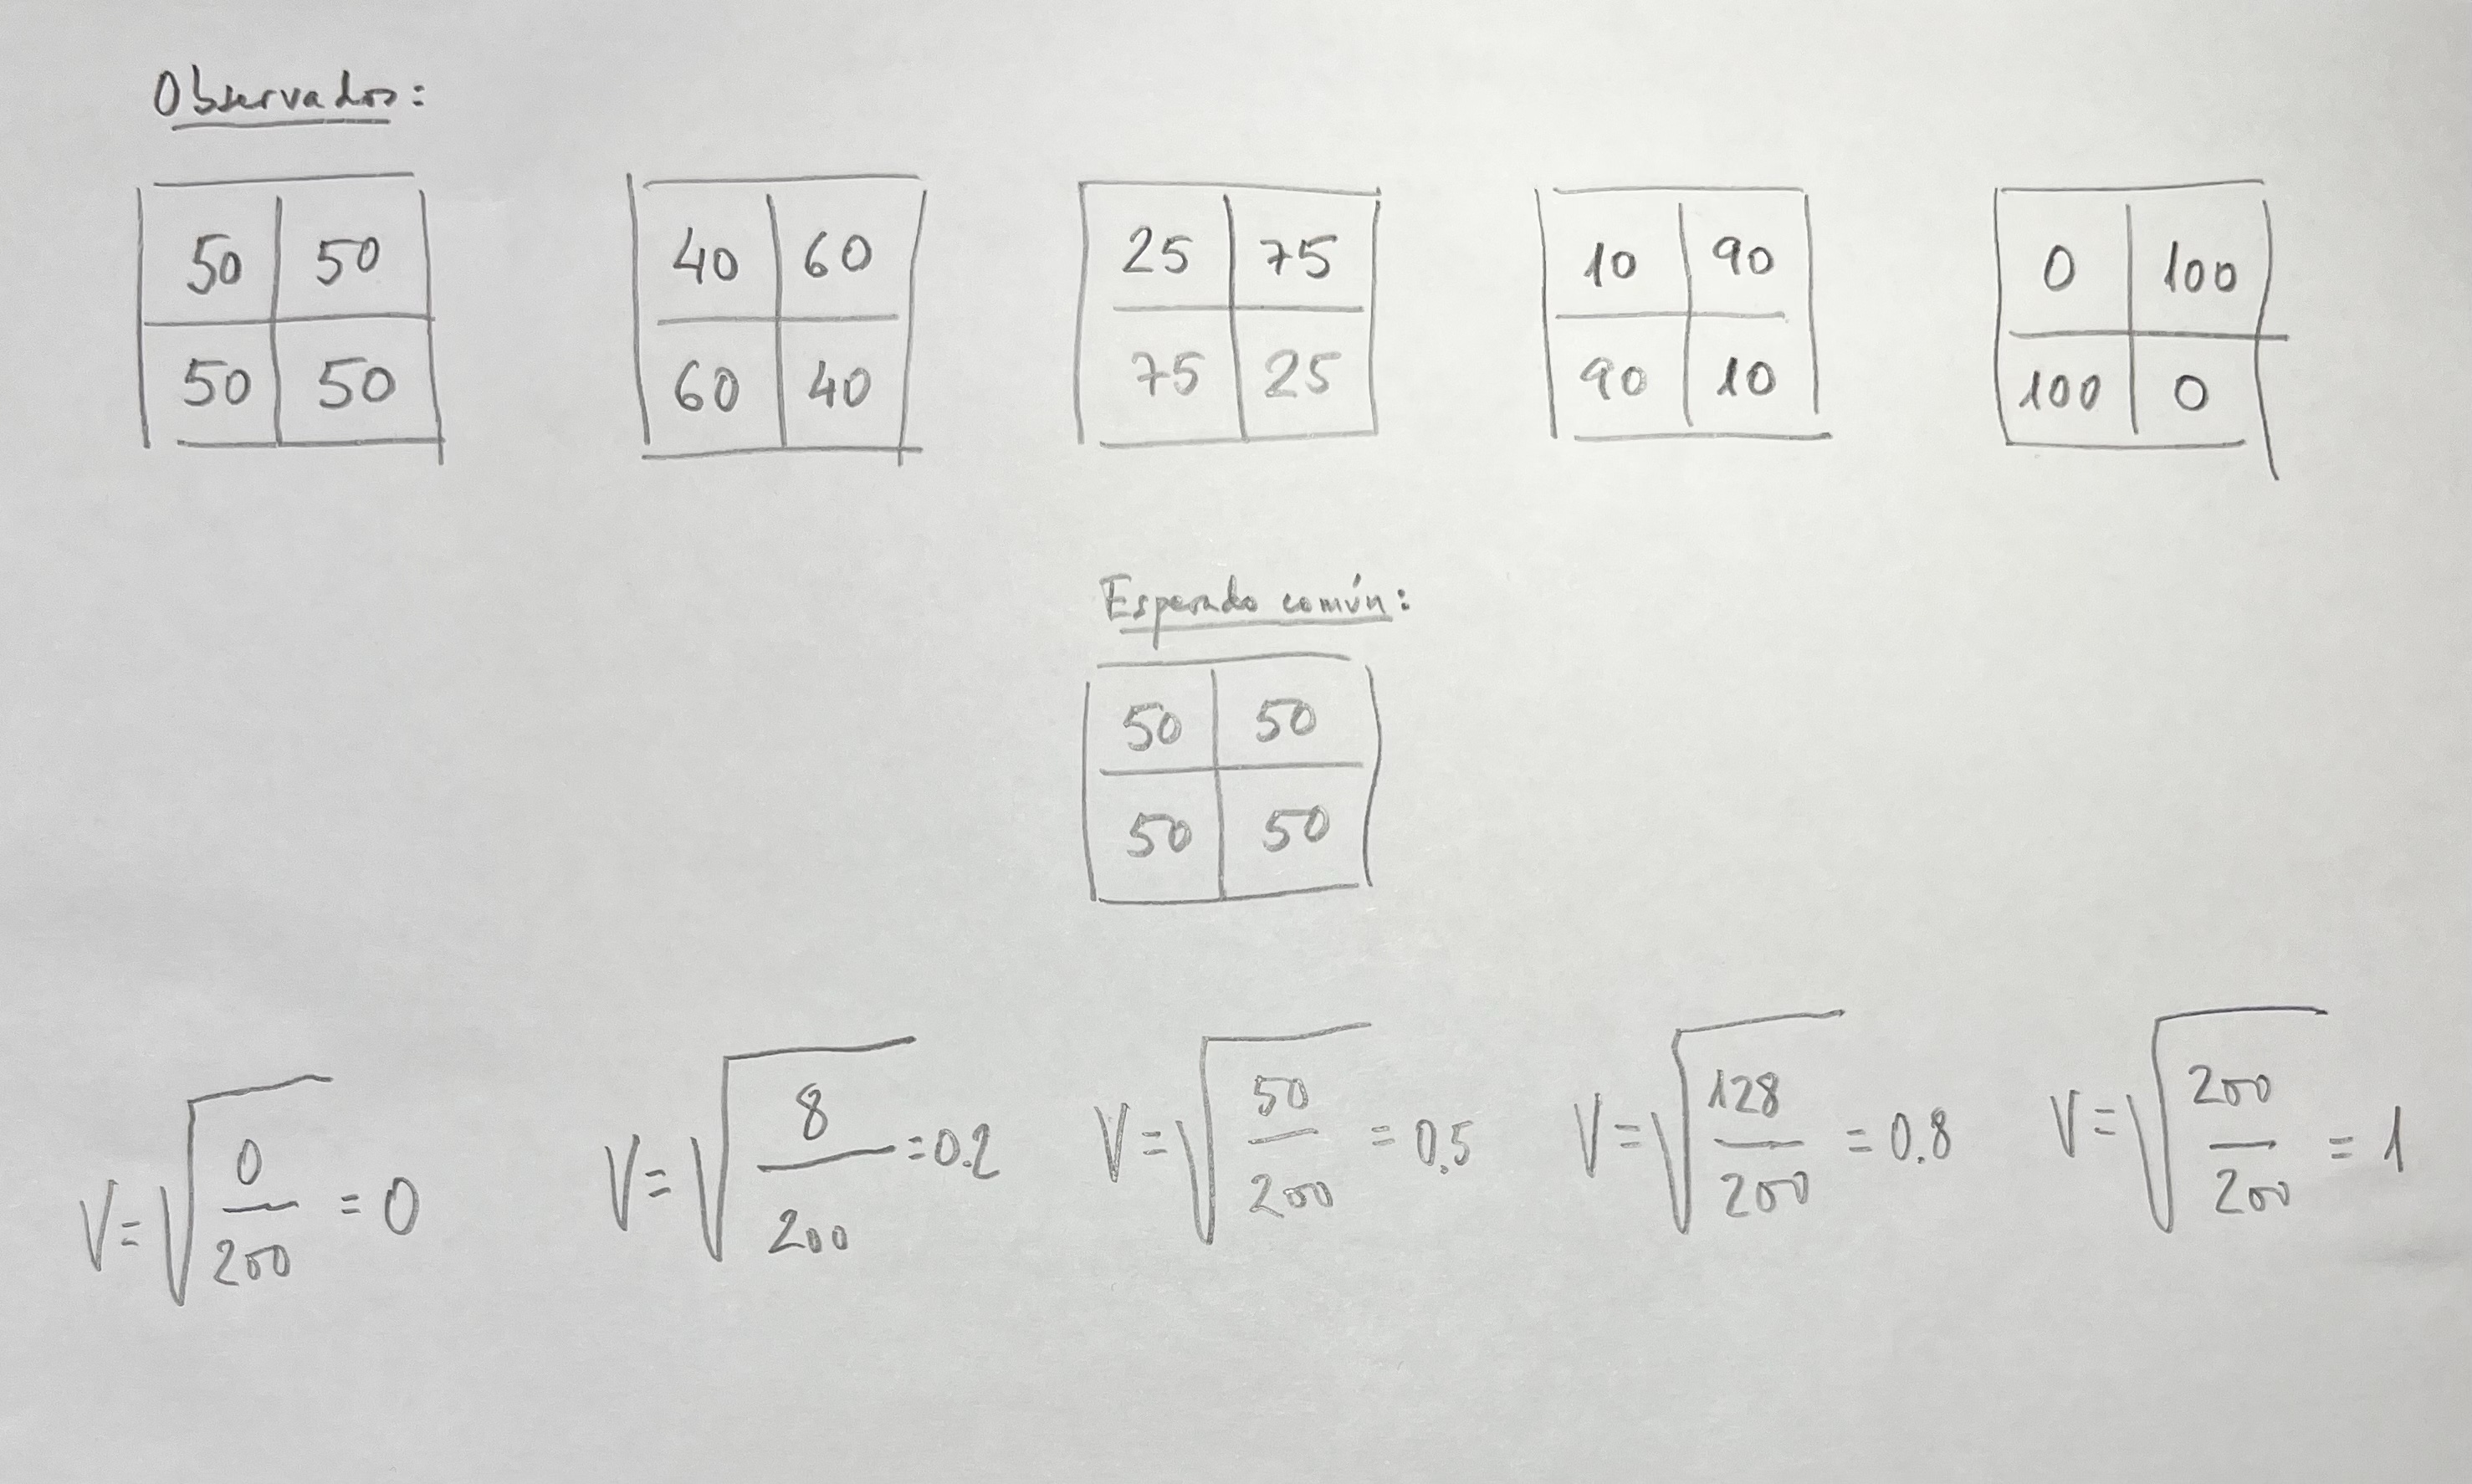 Observados:
50 50 40 60 25 75 10 90 0 100
50 50 60 40 75 25 90 10 100 0
Esperado común:
50 50
50 50
V=√0/200 = 0 V=√8/200 =0.2 V=√50/200 = 0.5 V=√128/200 = 0.8 V=√200/200 = 1